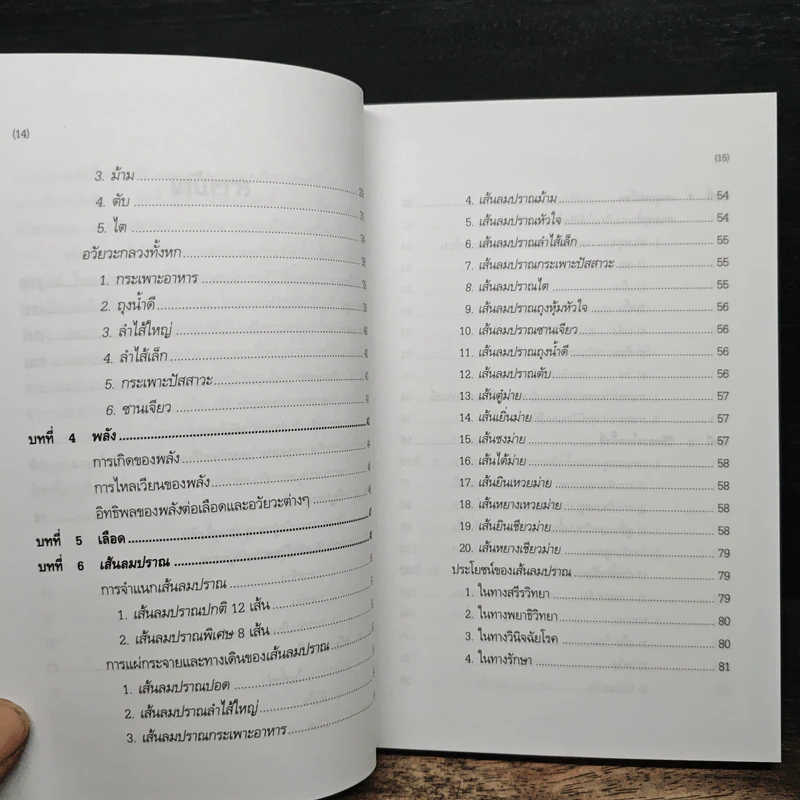 (14)
3. ม้าม
4. ตับ
5. ไต
อวัยวะกลวงทั้งหก
1. กระเพาะอาหาร
2. ถุงน้ำดี
3. ลำไส้ใหญ่
4. ลำไส้เล็ก
5. กระเพาะปัสสาวะ
6. ซานเจียว
บทที่ 4 พลัง
การเกิดของพลัง
การไหลเวียนของพลัง
อิทธิพลของพลังต่อเลือดและอวัยวะต่างๆ
บทที่ 5 เลือด
บทที่ 6 เส้นลมปราณ
การจำแนกเส้นลมปราณ
1. เส้นลมปราณปกติ 12 เส้น
2. เส้นลมปราณพิเศษ 8 เส้น
การแผ่กระจายและทางเดินของเส้นลมปราณ
1. เส้นลมปราณปอด
2. เส้นลมปราณลำไส้ใหญ่
3. เส้นลมปราณกระเพาะอาหาร
(15)
4. เส้นลมปราณม้าม 54
5. เส้นลมปราณหัวใจ 54
6. เส้นลมปราณลำไส้เล็ก 55
7. เส้นลมปราณกระเพาะปัสสาวะ 55
8. เส้นลมปราณไต 55
9. เส้นลมปราณถุงหุ้มหัวใจ 56
10. เส้นลมปราณซานเจียว 56
11. เส้นลมปราณถุงน้ำดี 56
12. เส้นลมปราณตับ 56
13. เส้นตู๋ม่าย 57
14. เส้นเยิ่นม่าย 57
15. เส้นชงม่าย 57
16. เส้นไต้ม่าย 58
17. เส้นยินเหวยม่าย 58
18. เส้นหยางเหวยม่าย 58
19. เส้นยินเชียวม่าย 58
20. เส้นหยางเชียวม่าย 79
ประโยชน์ของเส้นลมปราณ 79
1. ในทางสรีรวิทยา 79
2. ในทางพยาธิวิทยา 80
3. ในทางวินิจฉัยโรค 80
4. ในทางรักษา 81